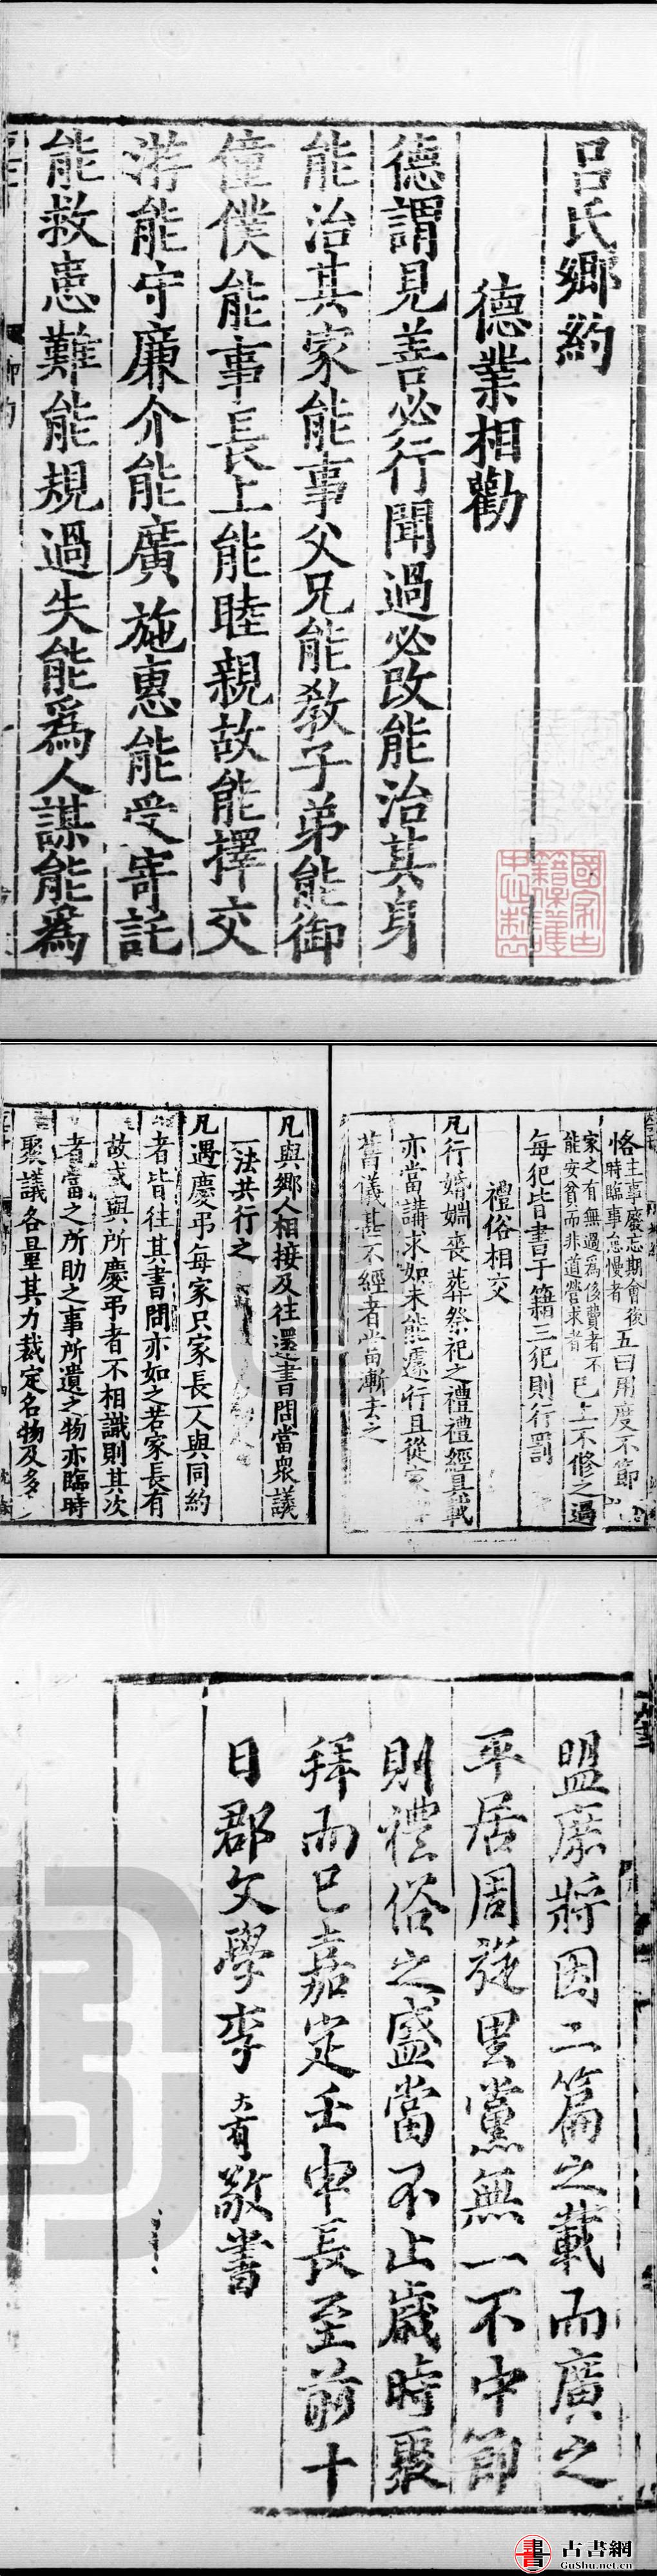 呂氏鄉約
德業相勸
德謂見善必行聞過必改能治其身
能治其家能事父兄能教子弟能御
僮僕能事長上能睦親故能擇交
游能守廉介能廣施惠能受寄託
能救患難能規過失能為人謀能為
恪主事廢忘期會後時臨事怠慢者五曰用度不節
家之有無過為侈費者不能安貧而非道營求者已上不修之過
每犯皆書于籍三犯則行罰
禮俗相交
凡行婚姻喪葬祭祀之禮禮經具載
亦當講求如未能遽行且從家
舊儀甚不經者當漸去之
凡與鄉人相接及往還書問當衆議
一法共行之
凡遇慶弔每家只家長一人與同約
者皆往其書問亦如之若家長有
故或與所慶弔者不相識則其次
者當之所助之事所遺之物亦臨時
聚議各量其力裁定名物及多
盟縻將因二篇之載而廣之
平居周旋里黨無一不中節
則禮俗之盛當不止歲時聚
拜而已嘉定壬申長至前十
日郡文學李大有敬書
國家古籍保護中心製
古書網
GuShu.net.cn